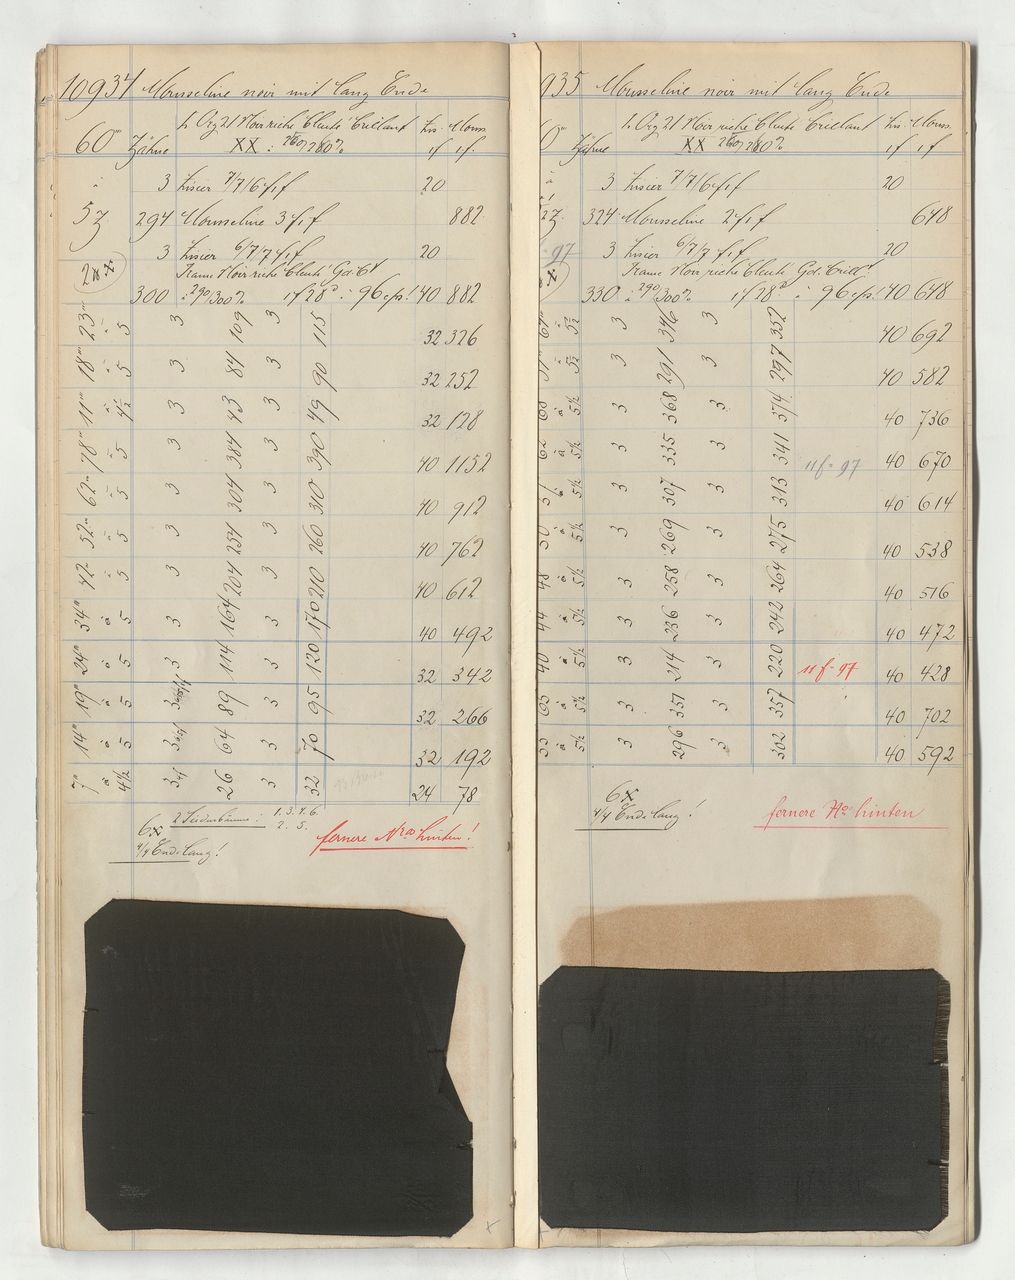 10934 Mousseline noir mit lang Ende
60"' Zähne
1 Org 21 Noir riche bleuté Brillant Lis. Mouss.
XX : 260/280% 1f 1f
3 Lisier 7/7/6 f.1f 20
57 294 Mousseline 3f.1f 882
3 Lisier 6/7/7 f.1f 20
Trame Noir riche bleuté Gd.
300 à 290/300% 1f 28 à 96 cps! 40 882
23"' à 5 3 109 3 115 32 326
18"' à 5 3 84 3 90 32 252
11"' à 4 1/2 3 43 3 49 32 128
78"' à 5 3 384 3 390 40 1152
62"' à 5 3 304 3 310 40 912
52"' à 5 3 254 3 260 40 762
42"' à 5 3 204 3 210 40 612
34"' à 5 3 164 3 170 40 492
24"' à 5 3 114 3 120 32 342
19"' à 5 3 89 3 95 32 266
14"' à 5 3 64 3 70 32 192
7"' à 4 1/2 3 26 3 32 24 78
6x 2 Seidenbäume: 1. 3. 4. 6.
2. 5.
4/4 Ende lang!
fernere Nros hinten!
935 Mousseline noir mit lang Ende
0"' Zähne
1 Org 21 Noir riche bleuté Brillant Lis. Mouss.
XX : 260/280% 1f 1f
3 Lisier 7/7/6 f.1f 20
324 Mousseline 2f.1f 648
3 Lisier 6/7/7 f.1f 20
Trame Noir riche bleuté Gd. Brill!
330 à 290/300% 1f 28 à 96 cps! 40 648
64"' à 5 1/2 3 346 3 352 40 692
à 5 1/2 3 291 3 297 40 582
68 à 5 1/2 3 368 3 374 40 736
62 à 5 1/2 3 335 3 341 11f-97 40 670
57 à 5 1/2 3 307 3 313 40 614
50 à 5 1/2 3 269 3 275 40 538
48 à 5 1/2 3 258 3 264 40 516
44 à 5 1/2 3 236 3 242 40 472
40 à 5 1/2 3 214 3 220 11f-97 40 428
65 à 5 1/2 3 351 3 357 40 702
55 à 5 1/2 3 296 3 302 40 592
6x
4/4 Ende lang!
fernere Nos hinten